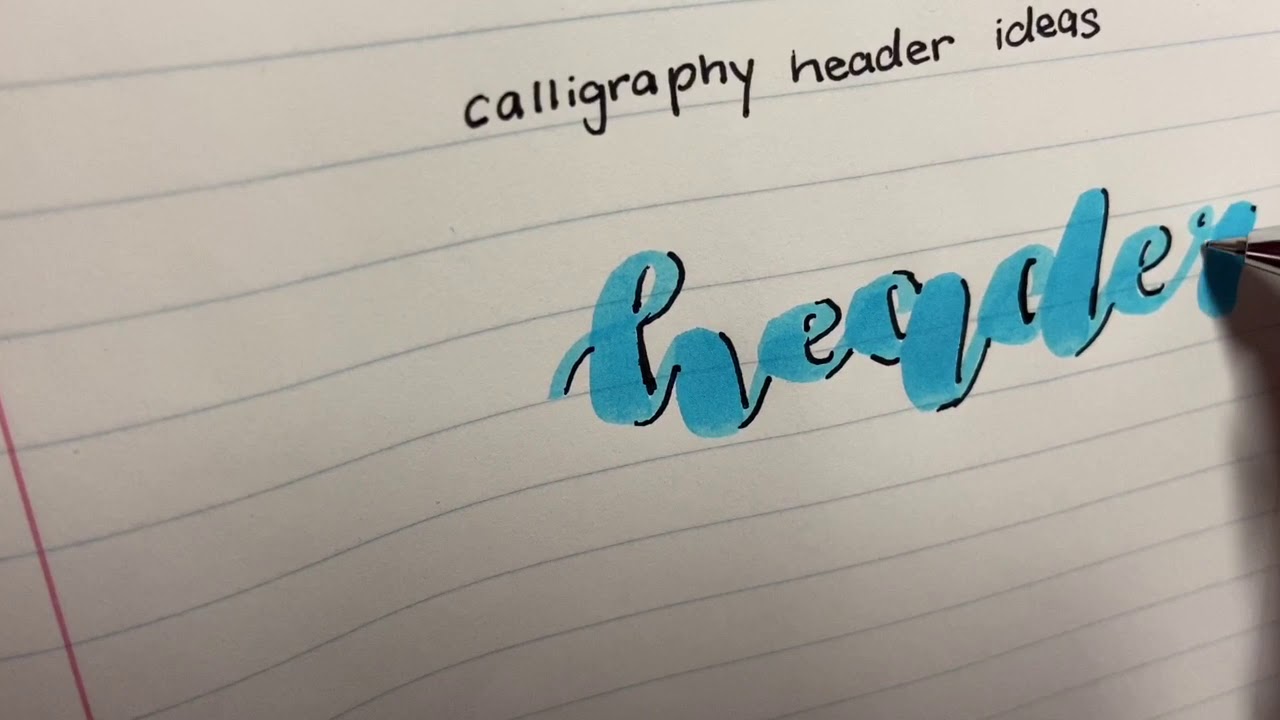 calligraphy header ideas
header